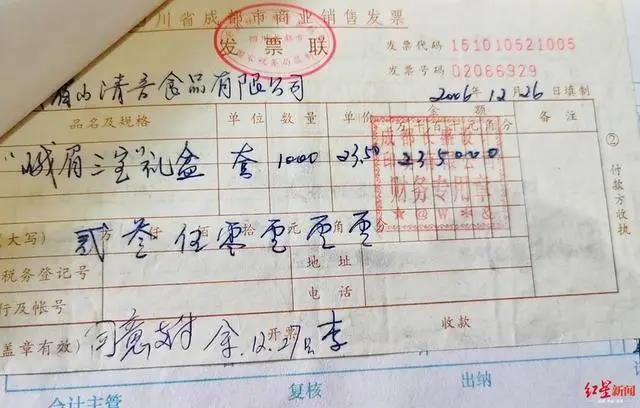 川省成都市商业销售发票
发票联
发票代码 151010521005
发票号码 02066929
眉山清音食品有限公司
2006年12月26日填制
品名及规格 单位 数量 单价 金额 备注
万千百十元角分
"峨眉三宝"礼盒 套 1000 23.50 2350000
财务专用章
*@W*&
②付款方收执
(大写) 贰万叁仟伍佰零拾零元零角零分
税务登记号 地址
行及帐号 电话
盖章有效) 开票 收款
同意支付 余 12.27日 李
会计主管 复核 出纳
红星新闻